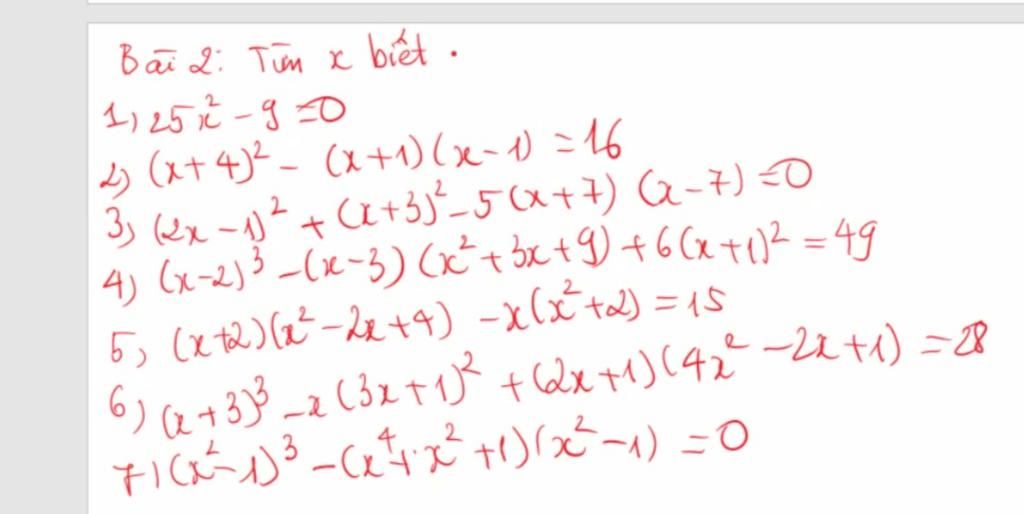 Bài 2: Tìm x biết.
1) 25x² - 9 = 0
2) (x + 4)² - (x + 1)(x - 1) = 16
3) (2x - 1)² + (x + 3)² - 5(x + 7)(x - 7) = 0
4) (x - 2)³ - (x - 3)(x² + 3x + 9) + 6(x + 1)² = 49
5) (x + 2)(x² - 2x + 4) - x(x² + 2) = 15
6) (x + 3)³ - x(3x + 1)² + (2x + 1)(4x² - 2x + 1) = 28
7) (x² - 1)³ - (x⁴ + x² + 1)(x² - 1) = 0